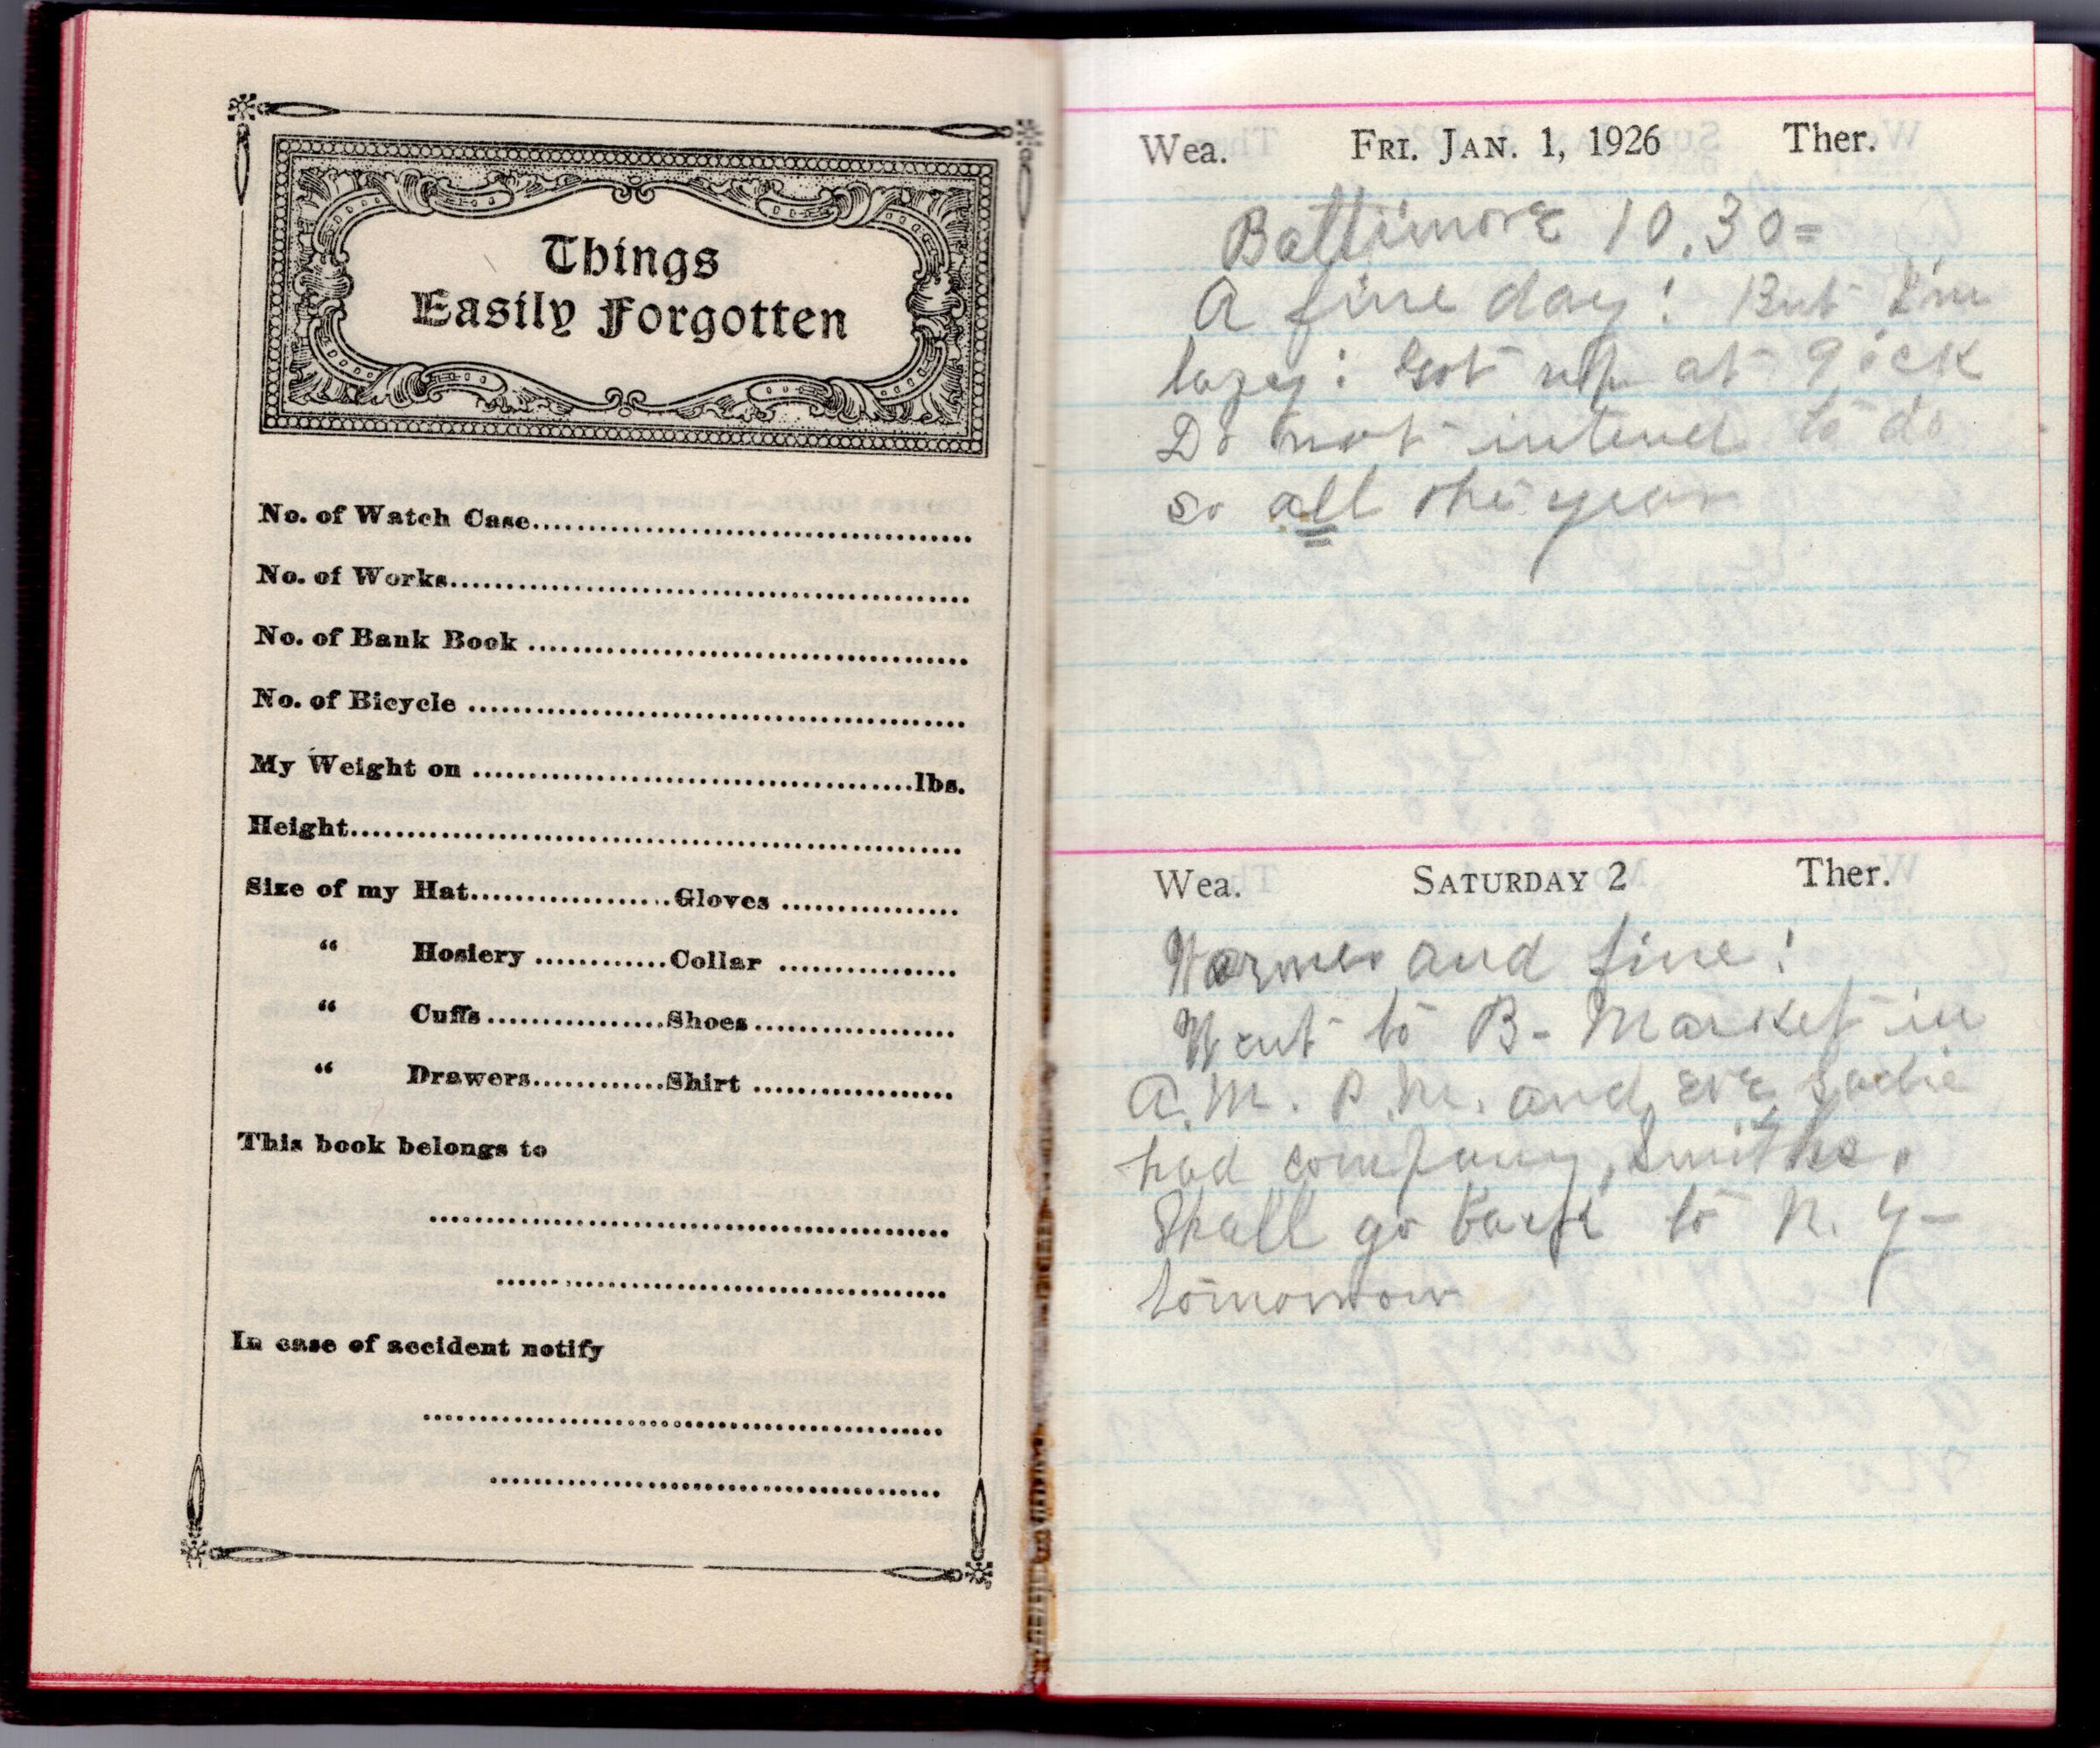 Things
Easily Forgotten
No. of Watch Case
No. of Works
No. of Bank Book
No. of Bicycle
My Weight on lbs.
Height
Size of my Hat Gloves
" Hosiery Collar
" Cuffs Shoes
" Drawers Shirt
This book belongs to
In case of accident notify
Wea. Fri. Jan. 1, 1926 Ther.
Baltimore 10.30=
A fine day! But I'm
lazy: Got up at 9 ock
Do not intend to do
so all the year
Wea. Saturday 2 Ther.
Warmer and fine!
Went to B- Market in
A.M. P.M. and eve Sadie
had company, Smiths.
Shall go back to N. Y-
tomorrow